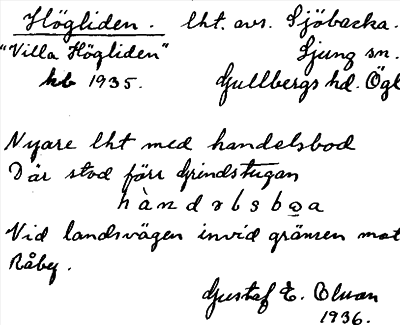 Högliden. lht. avs. Sjöbacka.
"Villa Högliden" Ljung sn.
kb 1935. Gullbergs hd. Ögl
Nyare lht med handelsbod
Där stod förr Grindstugan
hàndəlsboa
Vid landsvägen invid gränsen mot
Råby.
Gustaf E.
1936.